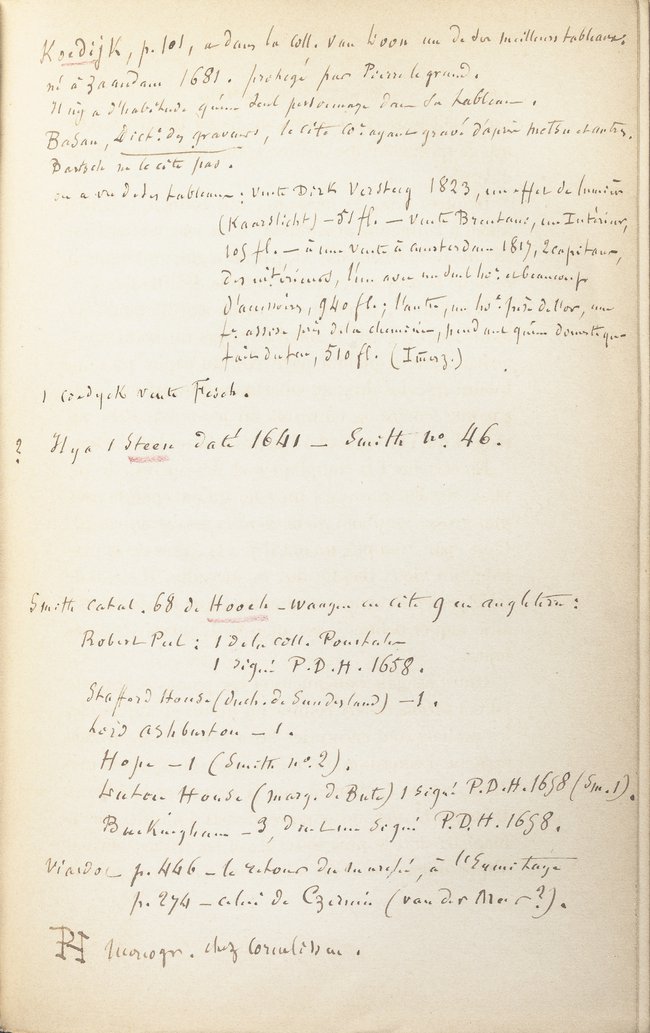 Koedijk, p. 101, a dans la coll. van Loon un de ses meilleurs tableaux.
né à Zaandam 1681. protégé par Pierre le grand.
Il n'y a d'habitude qu'un seul personnage dans ses tableaux.
Basan, Dict. des graveurs, le cite co. ayant gravé d'après Metsu et autres.
Bartsch ne le cite pas.
on a vu de des tableaux : vente Dirk Versteeg 1823, un effet de lumière
(Kaarslicht) – 51 fl. – vente Brentano, un Intérieur,
105 fl. – à une vente à amsterdam 1817, 2 capitaux,
des intérieurs, l'un avec un seul ho. et beaucoup
d'accessoires, 940 fl; l'autre, un ho. pèse de l'or, une
fe. assise près de la cheminée, pendant qu'une domestique
fait du feu, 510 fl. (Imerz.)
1 Coedyck vente Fesch.
? Il y a 1 Steen daté 1641 – Smith no. 46.
Smith catal. 68 de Hooch – Waagen en cite 9 en angleterre :
Robert Peel : 1 de la coll. Pourtalès
1 signé P.D.H. 1658.
Stafford House (duch. de Sunderland) – 1.
Lord Ashburton – 1.
Hope – 1 (Smith no. 2).
Luton House (marq. de Bute) 1 signé P.D.H. 1658 (Sm. 1).
Buckingham – 3, dont un signé P.D.H. 1658.
Viardot p. 446 – le retour du marché, à l'Ermitage
p. 274 – celui de Czernin (van der Meer ?).
PH Monogr. chez Cornelissen.